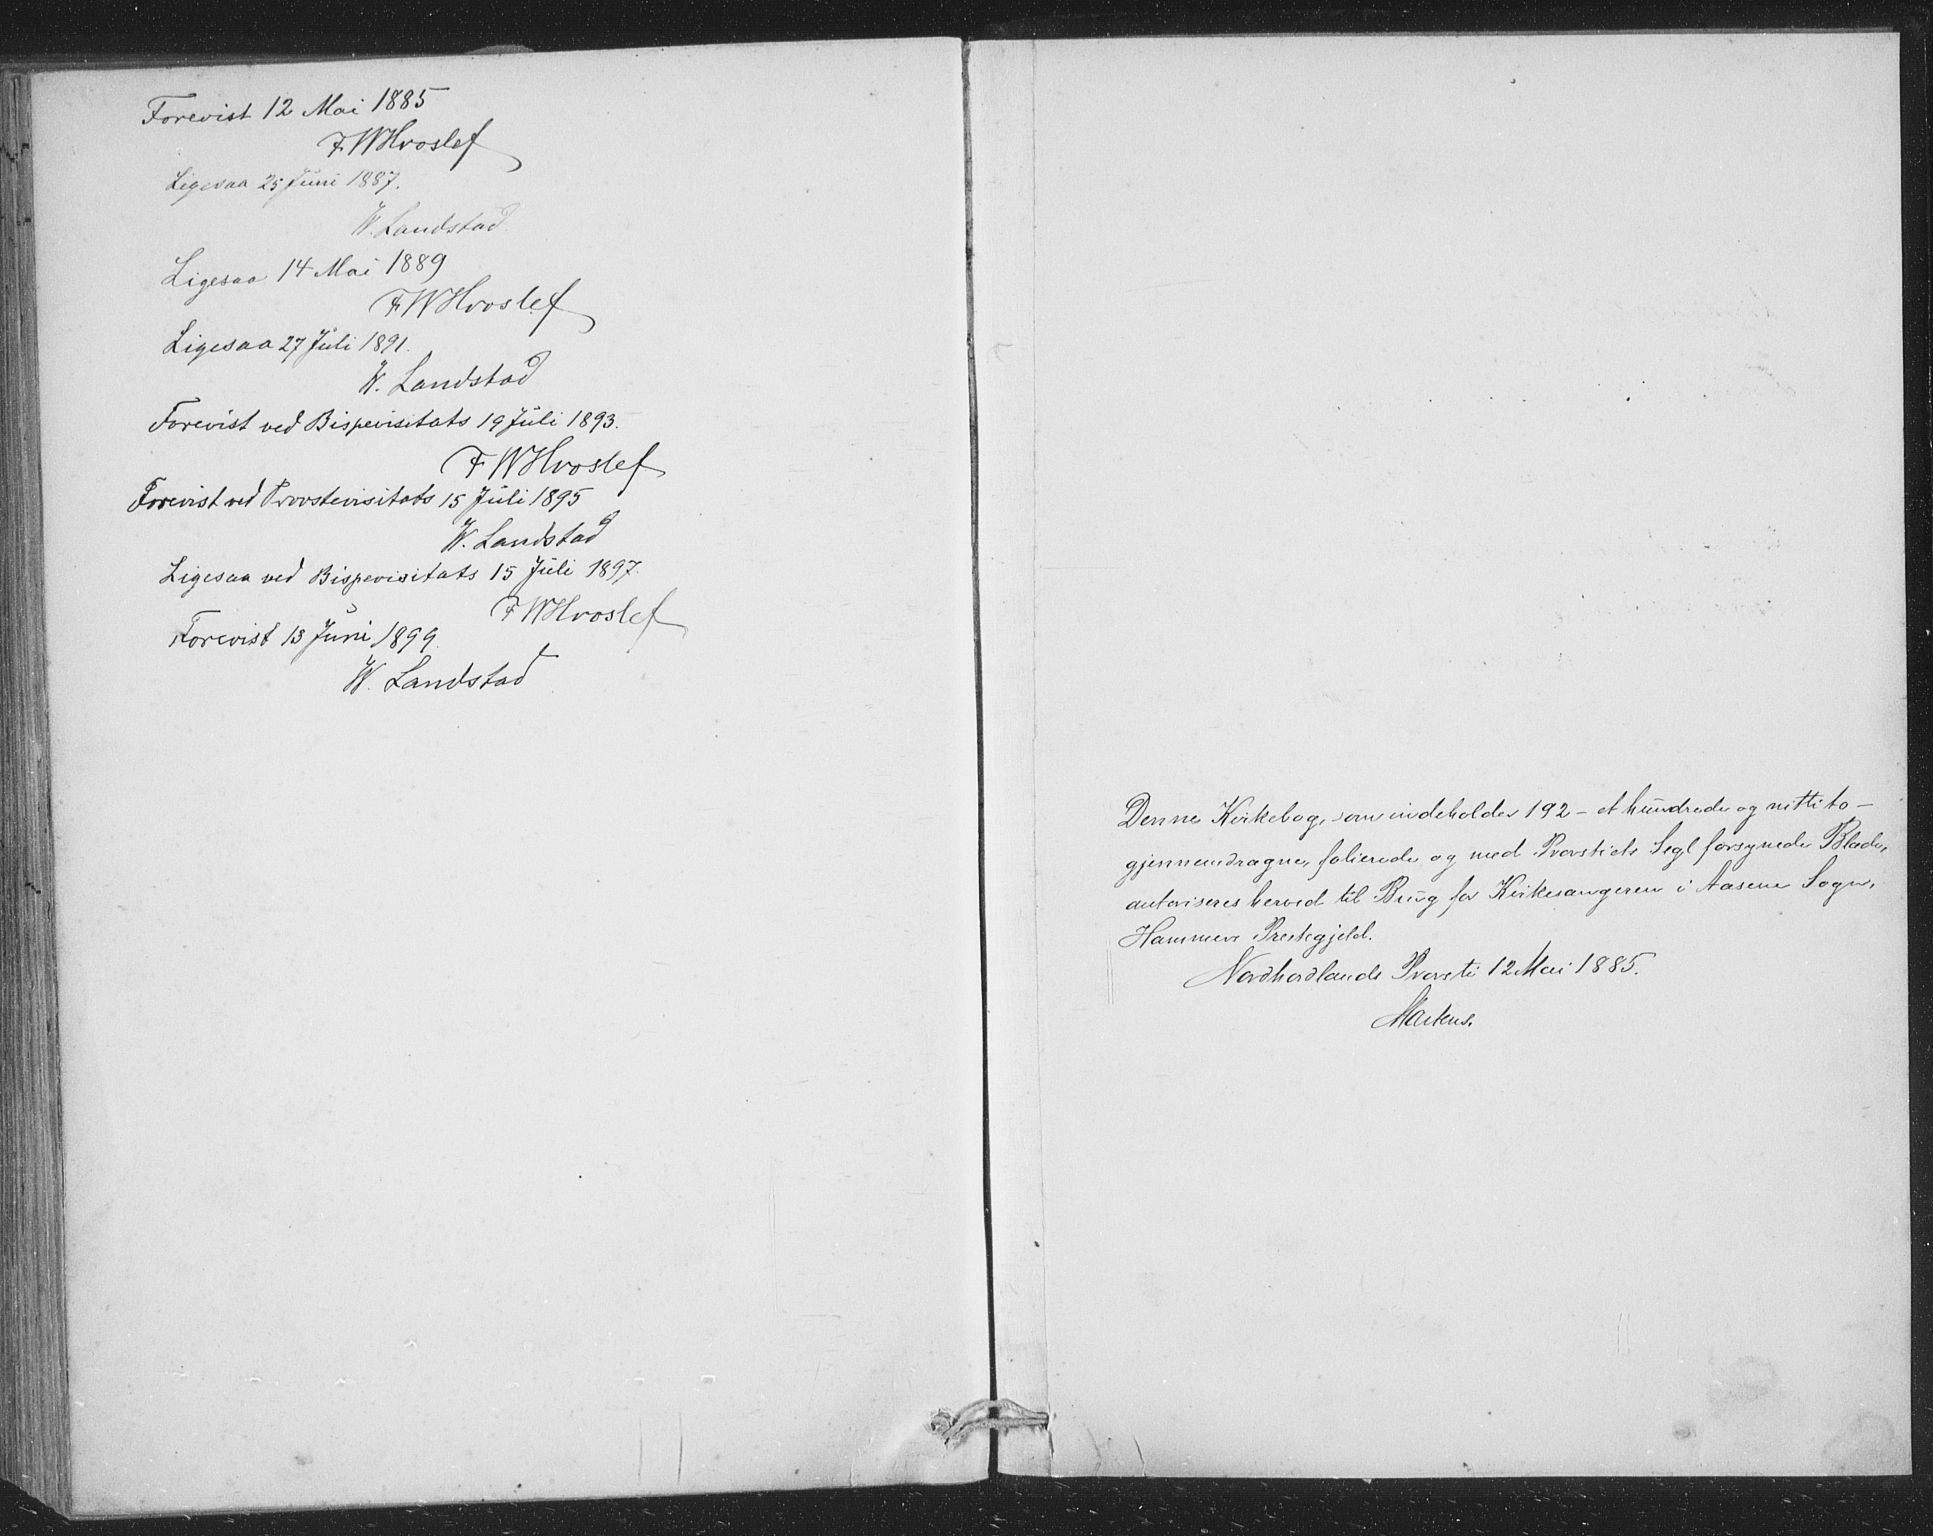 Forevist 12 Mai 1885
F. W Hvoslef
Ligesaa 25 Juni 1887.
W. Landstad
Ligesaa 14 Mai 1889
F. W Hvoslef
Ligesaa 27 Juli 1891.
W. Landstad
Forevist ved Bispevisitats 19 Juli 1893.
F. W Hvoslef
Forevist ved Provstevisitats 15 Juli 1895
W. Landstad
Ligesaa ved Bispevisitats 15 Juli 1897.
F W Hvoslef
Forevist 13 Juni 1899.
W. Landstad
Denne Kirkebog, som indeholder 192 – et hundrede og nitti to –
gjennemdragne, folierede og med Provstiets Segl forsynede Blade,
autoriseres herved til Brug for Kirkesangeren i Aasene Sogn,
Hammers Prestegjeld.
Nordhordlands Provsti 12 Mai 1885.
Martens.